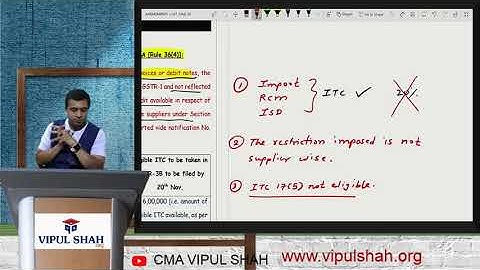 A [Rule 36(4)]:
oices or debit notes, the
GSTR-1 and not reflected
dit available in respect of
e suppliers under Section
rted vide notification No.
ible ITC to be taken in
R-3B to be filed by
20th Nov.
6,00,000 [i.e. amount of
ible ITC available, as per
① Import
Rcm
ISD
ITC ✓
20%
② The restriction imposed is not
supplier wise.
③ ITC 17(5) not eligible.
VIPUL SHAH
.org
CMA VIPUL SHAH
www.vipulshah.org